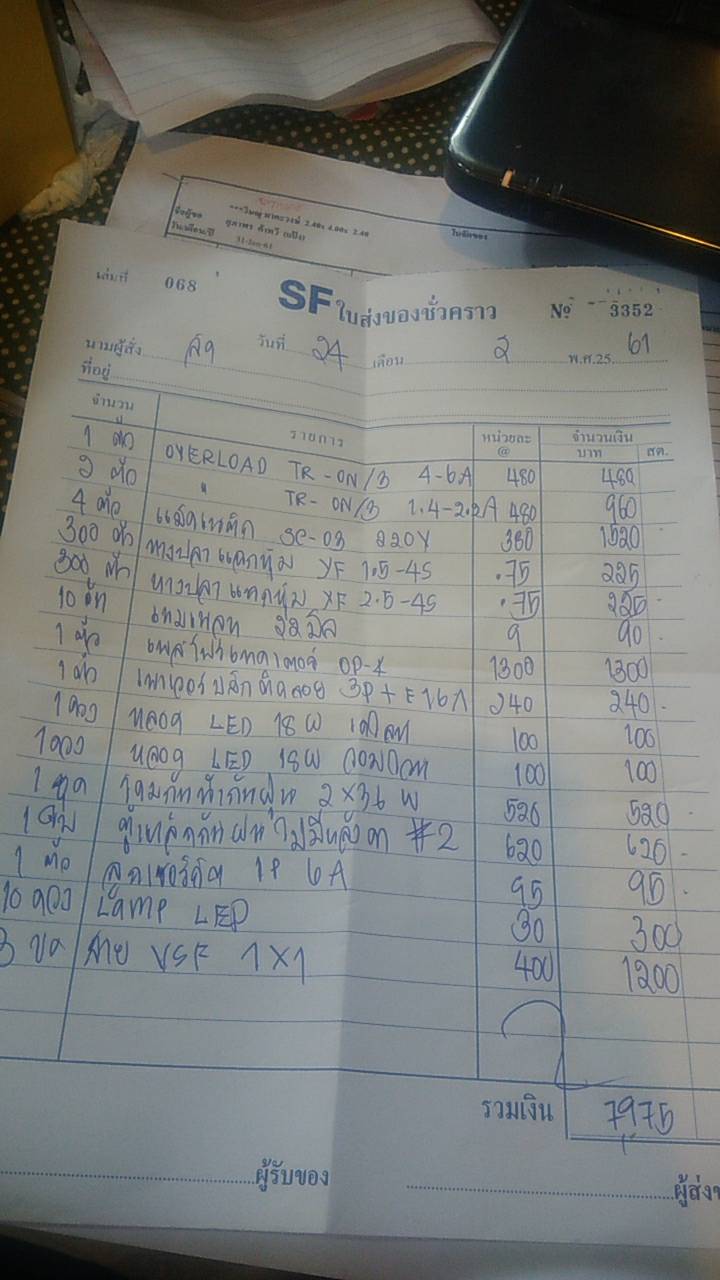 ***วิษณุ มาตะวงษ์ 2.40x 4.00x 2.40
ชื่อผู้ขอ
วัน/เดือน/ปี
31-Jan-61
ใบสั่งของ
เล่มที่ 068
SF ใบส่งของชั่วคราว
№ 3352
นามผู้สั่ง วันที่ 24 เดือน 2 พ.ศ.25 61
ที่อยู่
จำนวน รายการ หน่วยละ @ จำนวนเงิน บาท สต.
1 ตัว OVERLOAD TR-ON/3 4-6A 480 480
2 ตัว " TR-ON/3 1.4-2.2A 480 960
4 ตัว แม็คเนติก SC-03 220V 380 1520
300 ตัว หางปลาแฉกหุ้ม YF 1.5-4S .75 225
300 ตัว หางปลาแฉกหุ้ม YF 2.5-4S .75 225
10 อัน เนมเพลท 22 มิล 9 90
1 ตัว เฟสโปรเทคเตอร์ OP-4 1300 1300
1 ตัว เพาเวอร์ปลั๊กติดลอย 3P+E 16A 240 240
1 ดวง หลอด LED 18W เดไลท์ 100 100
1 ดวง หลอด LED 18W วอมไวท์ 100 100
1 ชุด โคมกันน้ำกันฝุ่น 2x36 W 520 520
1 ใบ ตู้เหล็กกันฝนไม่มีหลังคา #2 620 620
1 ตัว ลูกเซอร์กิต 1P 6A 95 95
10 ดวง Lamp LED 30 300
3 ขด สาย VSF 1x1 400 1200
รวมเงิน 7975
ผู้รับของ ผู้ส่งข